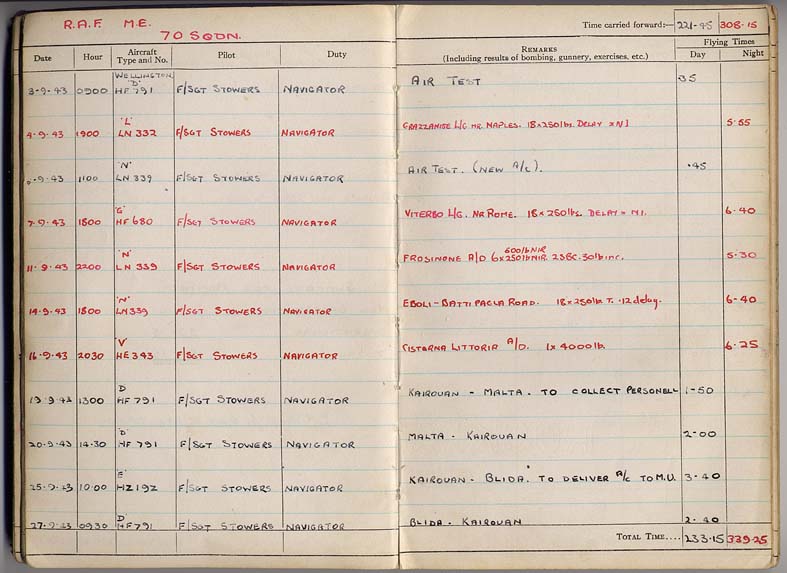 R.A.F. M.E.
70 SQDN.
Time carried forward:— 221-45 308-15
Date Hour Aircraft Type and No. Pilot Duty REMARKS (Including results of bombing, gunnery, exercises, etc.) Flying Times Day Night
WELLINGTON
"D"
3-9-43 0900 HF 791 F/SGT STOWERS NAVIGATOR AIR TEST 35
"L"
4-9-43 1900 LN 332 F/SGT STOWERS NAVIGATOR GRAZZANISE L/G NR. NAPLES. 18x250lbs. DELAY 5-55
"N"
-9-43 1100 LN 339 F/SGT STOWERS NAVIGATOR AIR TEST. (NEW A/C). .45
"G"
7-9-43 1800 HF 680 F/SGT STOWERS NAVIGATOR VITERBO L/G. NR ROME. 18x250lbs. DELAY 6-40
"N" 600lb NIR
11.9.43 2200 LN 339 F/SGT STOWERS NAVIGATOR FROSINONE A/D 6x250lb NIR. 2SBC. 30lb inc. 5-30
"N"
14.9.43 1800 LN339 F/SGT STOWERS NAVIGATOR EBOLI-BATTIPAGLA ROAD. 18x250lb T. .12 delay. 6-40
"V"
16-9-43 2030 HE 343 F/SGT STOWERS NAVIGATOR CISTERNA LITTORIA A/D. 1x 4000lb. 6-25
D
19-9-43 1300 HF 791 F/SGT STOWERS NAVIGATOR KAIROUAN - MALTA. TO COLLECT PERSONELL 1-50
"D"
20-9-43 14.30 HF 791 F/SGT STOWERS NAVIGATOR MALTA - KAIROUAN 2-00
"E"
25-9-43 10.00 HZ192 F/SGT STOWERS NAVIGATOR KAIROUAN - BLIDA. TO DELIVER A/C TO M.U. 3-40
D
27-9-43 0930 HF791 F/SGT STOWERS NAVIGATOR BLIDA - KAIROUAN 2-40
TOTAL TIME.... 233-15 339-25